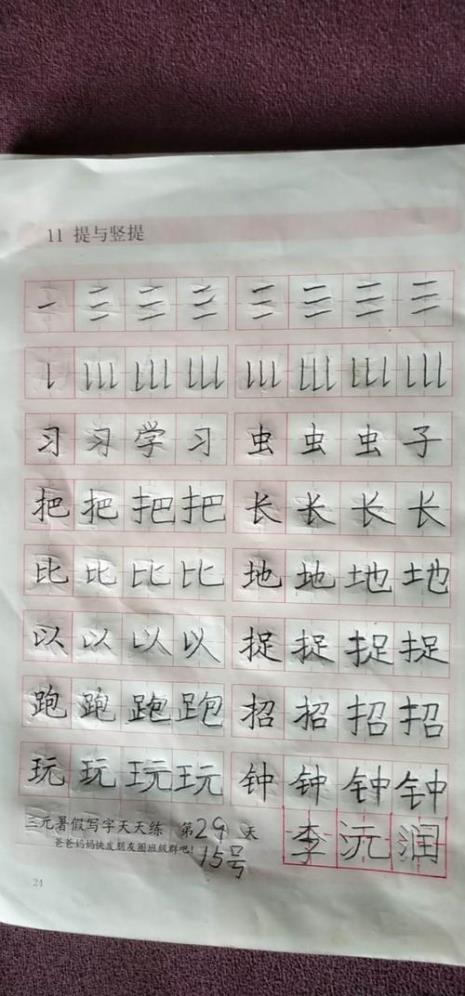 11 提与竖提
习 习 学 习 虫 虫 虫 子
把 把 把 把 长 长 长 长
比 比 比 比 地 地 地 地
以 以 以 以 捉 捉 捉 捉
跑 跑 跑 跑 招 招 招 招
玩 玩 玩 玩 钟 钟 钟 钟
三元暑假写字天天练 第29天 李沅润
爸爸妈妈快发朋友圈班级群吧!
15号
24